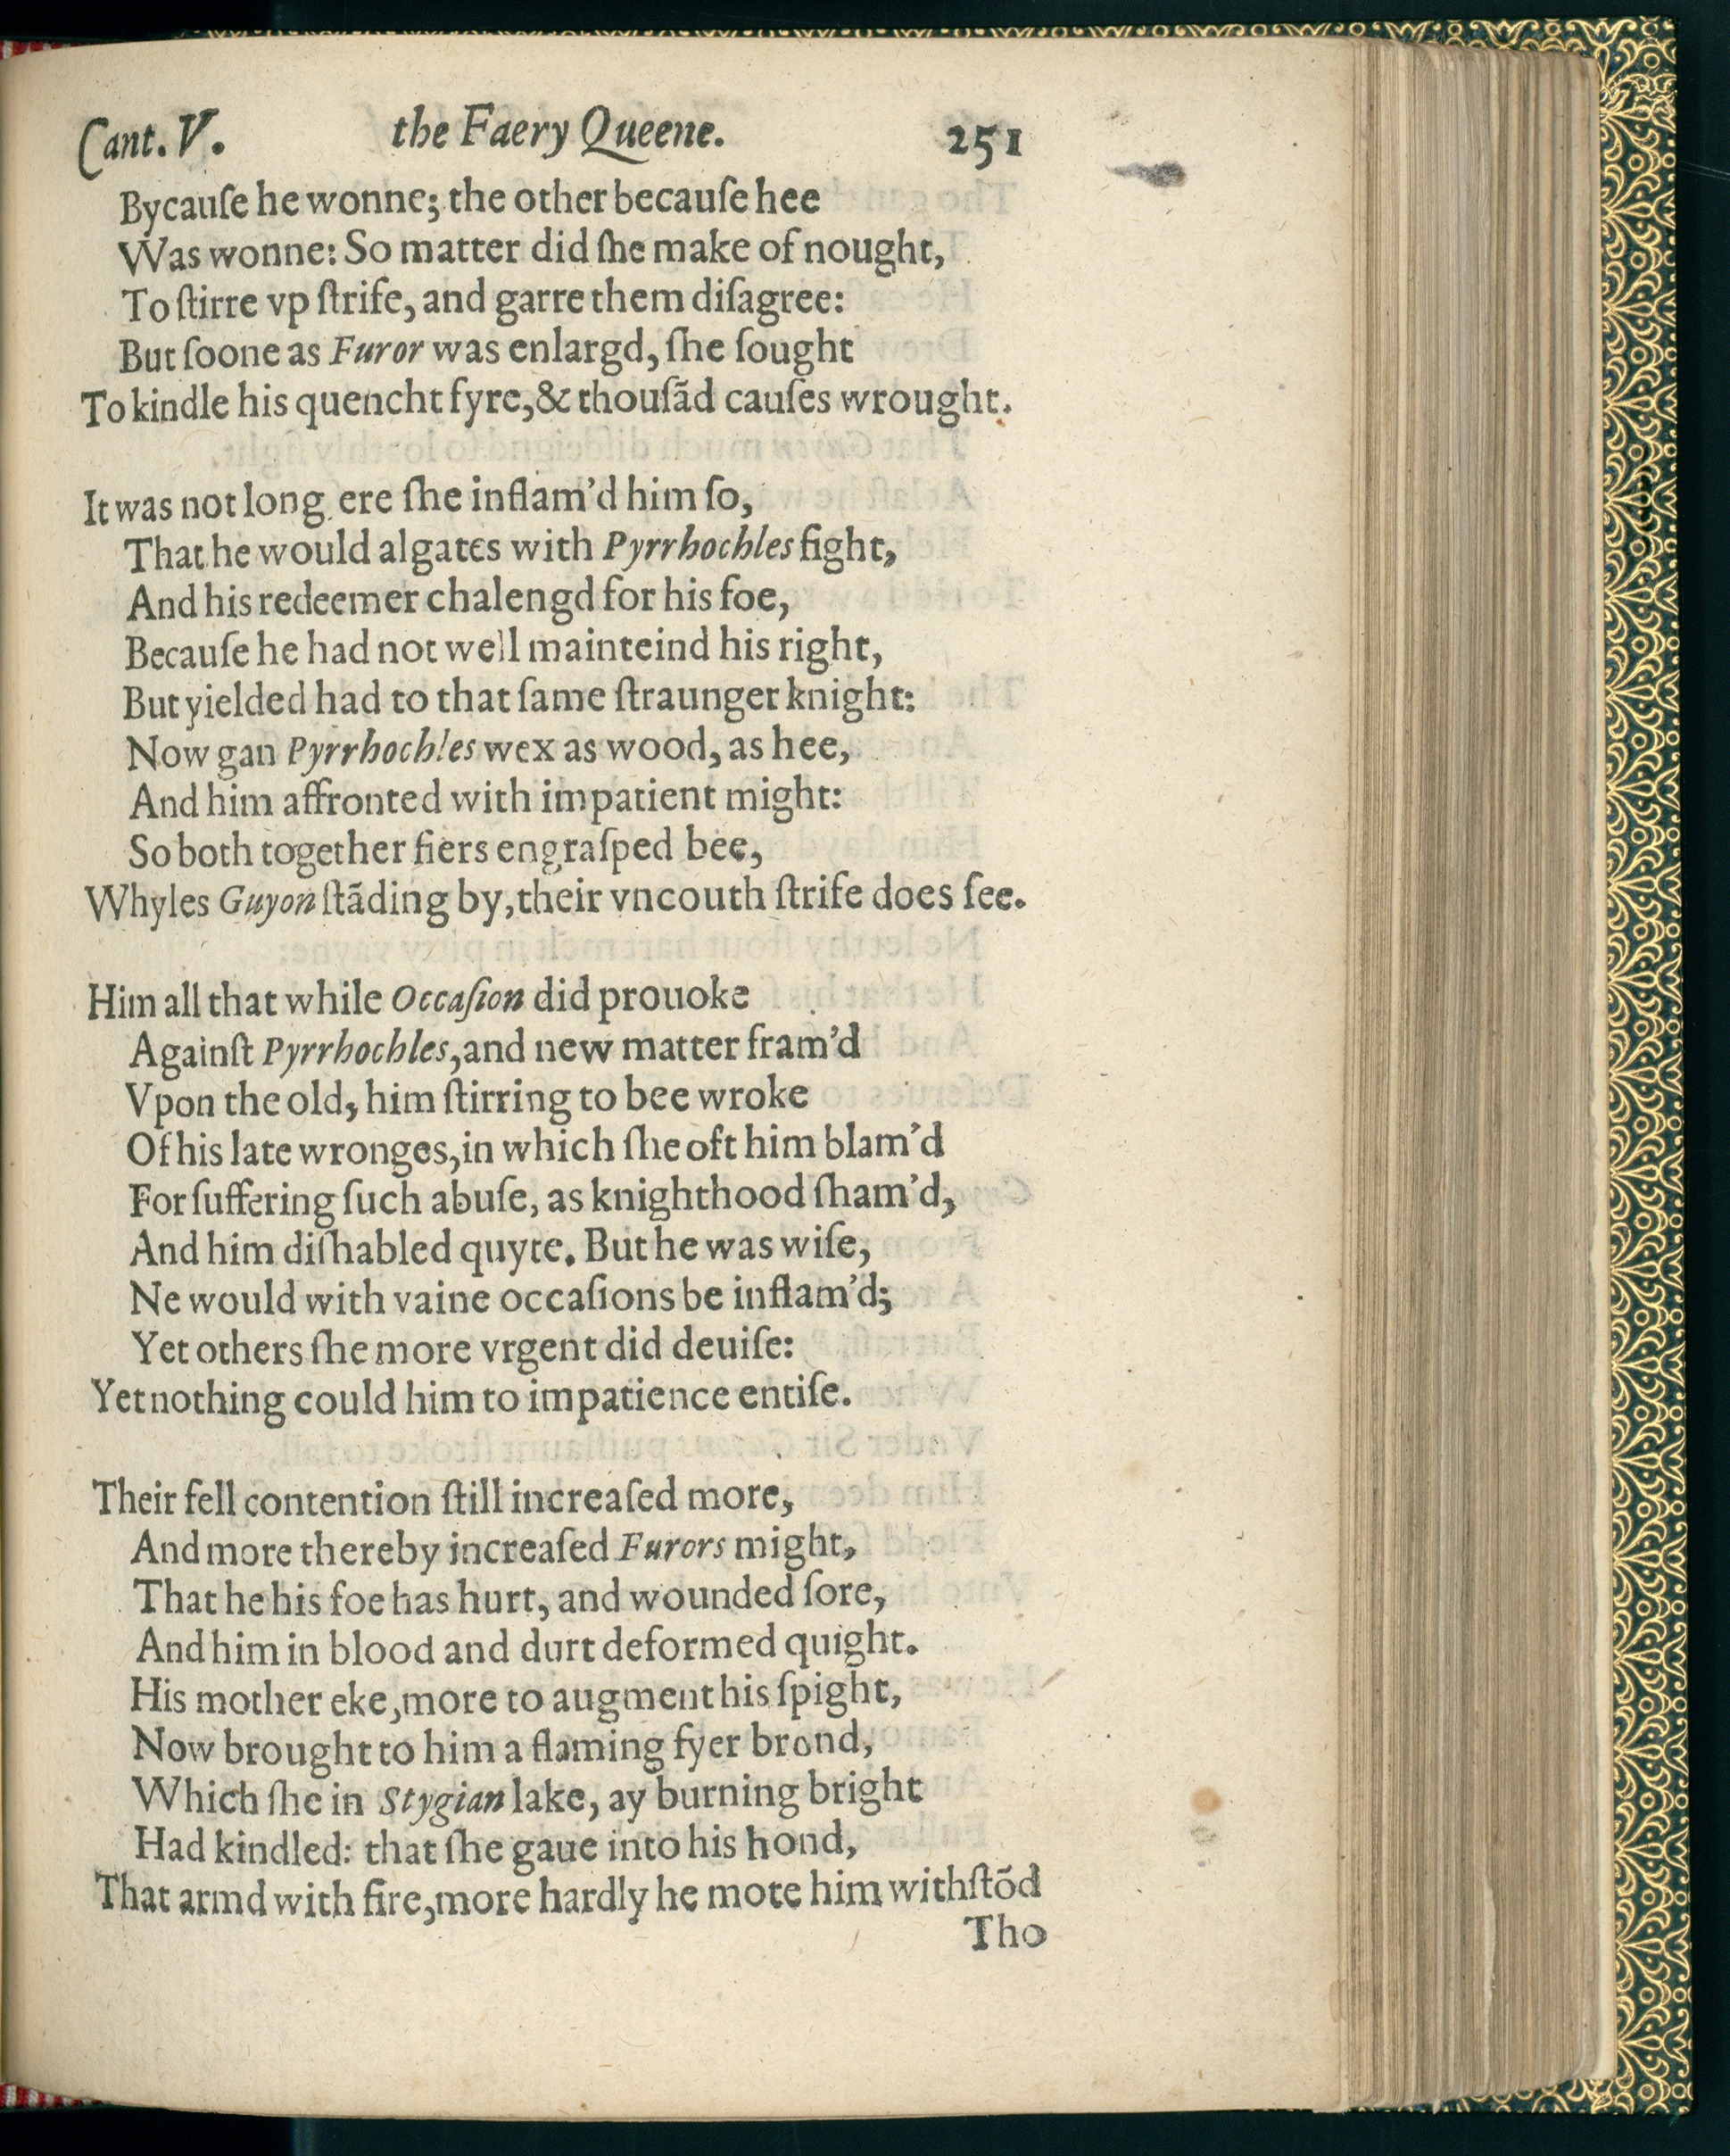 Cant. V. the Faery Queene. 251
Bycauſe he wonne; the other becauſe hee
Was wonne: So matter did ſhe make of nought,
To ſtirre vp ſtrife, and garre them diſagree:
But ſoone as Furor was enlargd, ſhe ſought
To kindle his quencht fyre, & thouſãd cauſes wrought.
It was not long ere ſhe inflam'd him ſo,
That he would algates with Pyrrhochles fight,
And his redeemer chalengd for his foe,
Becauſe he had not well mainteind his right,
But yielded had to that ſame ſtraunger knight:
Now gan Pyrrhochles wex as wood, as hee,
And him affronted with impatient might:
So both together fiers engraſped bee,
Whyles Guyon ſtãding by, their vncouth ſtrife does ſee.
Him all that while Occaſion did prouoke
Againſt Pyrrhochles, and new matter fram'd
Vpon the old, him ſtirring to bee wroke
Of his late wronges, in which ſhe oft him blam'd
For ſuffering ſuch abuſe, as knighthood ſham'd,
And him diſhabled quyte. But he was wiſe,
Ne would with vaine occaſions be inflam'd;
Yet others ſhe more vrgent did deuiſe:
Yet nothing could him to impatience entiſe.
Their fell contention ſtill increaſed more,
And more thereby increaſed Furors might,
That he his foe has hurt, and wounded ſore,
And him in blood and durt deformed quight.
His mother eke, more to augment his ſpight,
Now brought to him a flaming fyer brond,
Which ſhe in Stygian lake, ay burning bright
Had kindled: that ſhe gaue into his hond,
That armd with fire, more hardly he mote him withſtõd
Tho